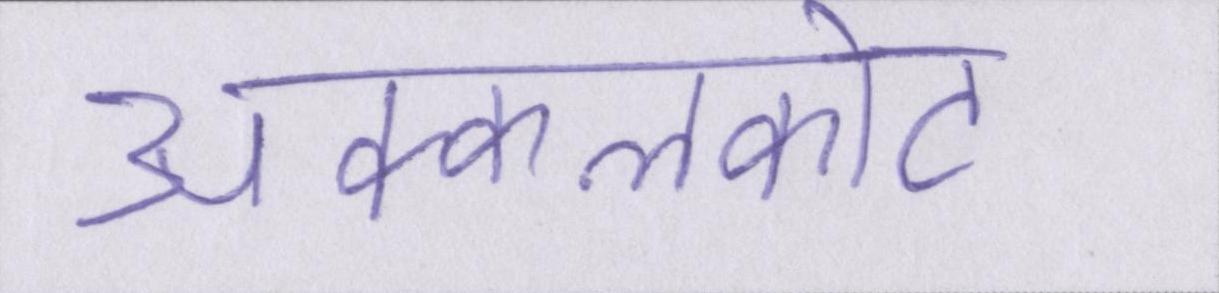 अक्कलकोट